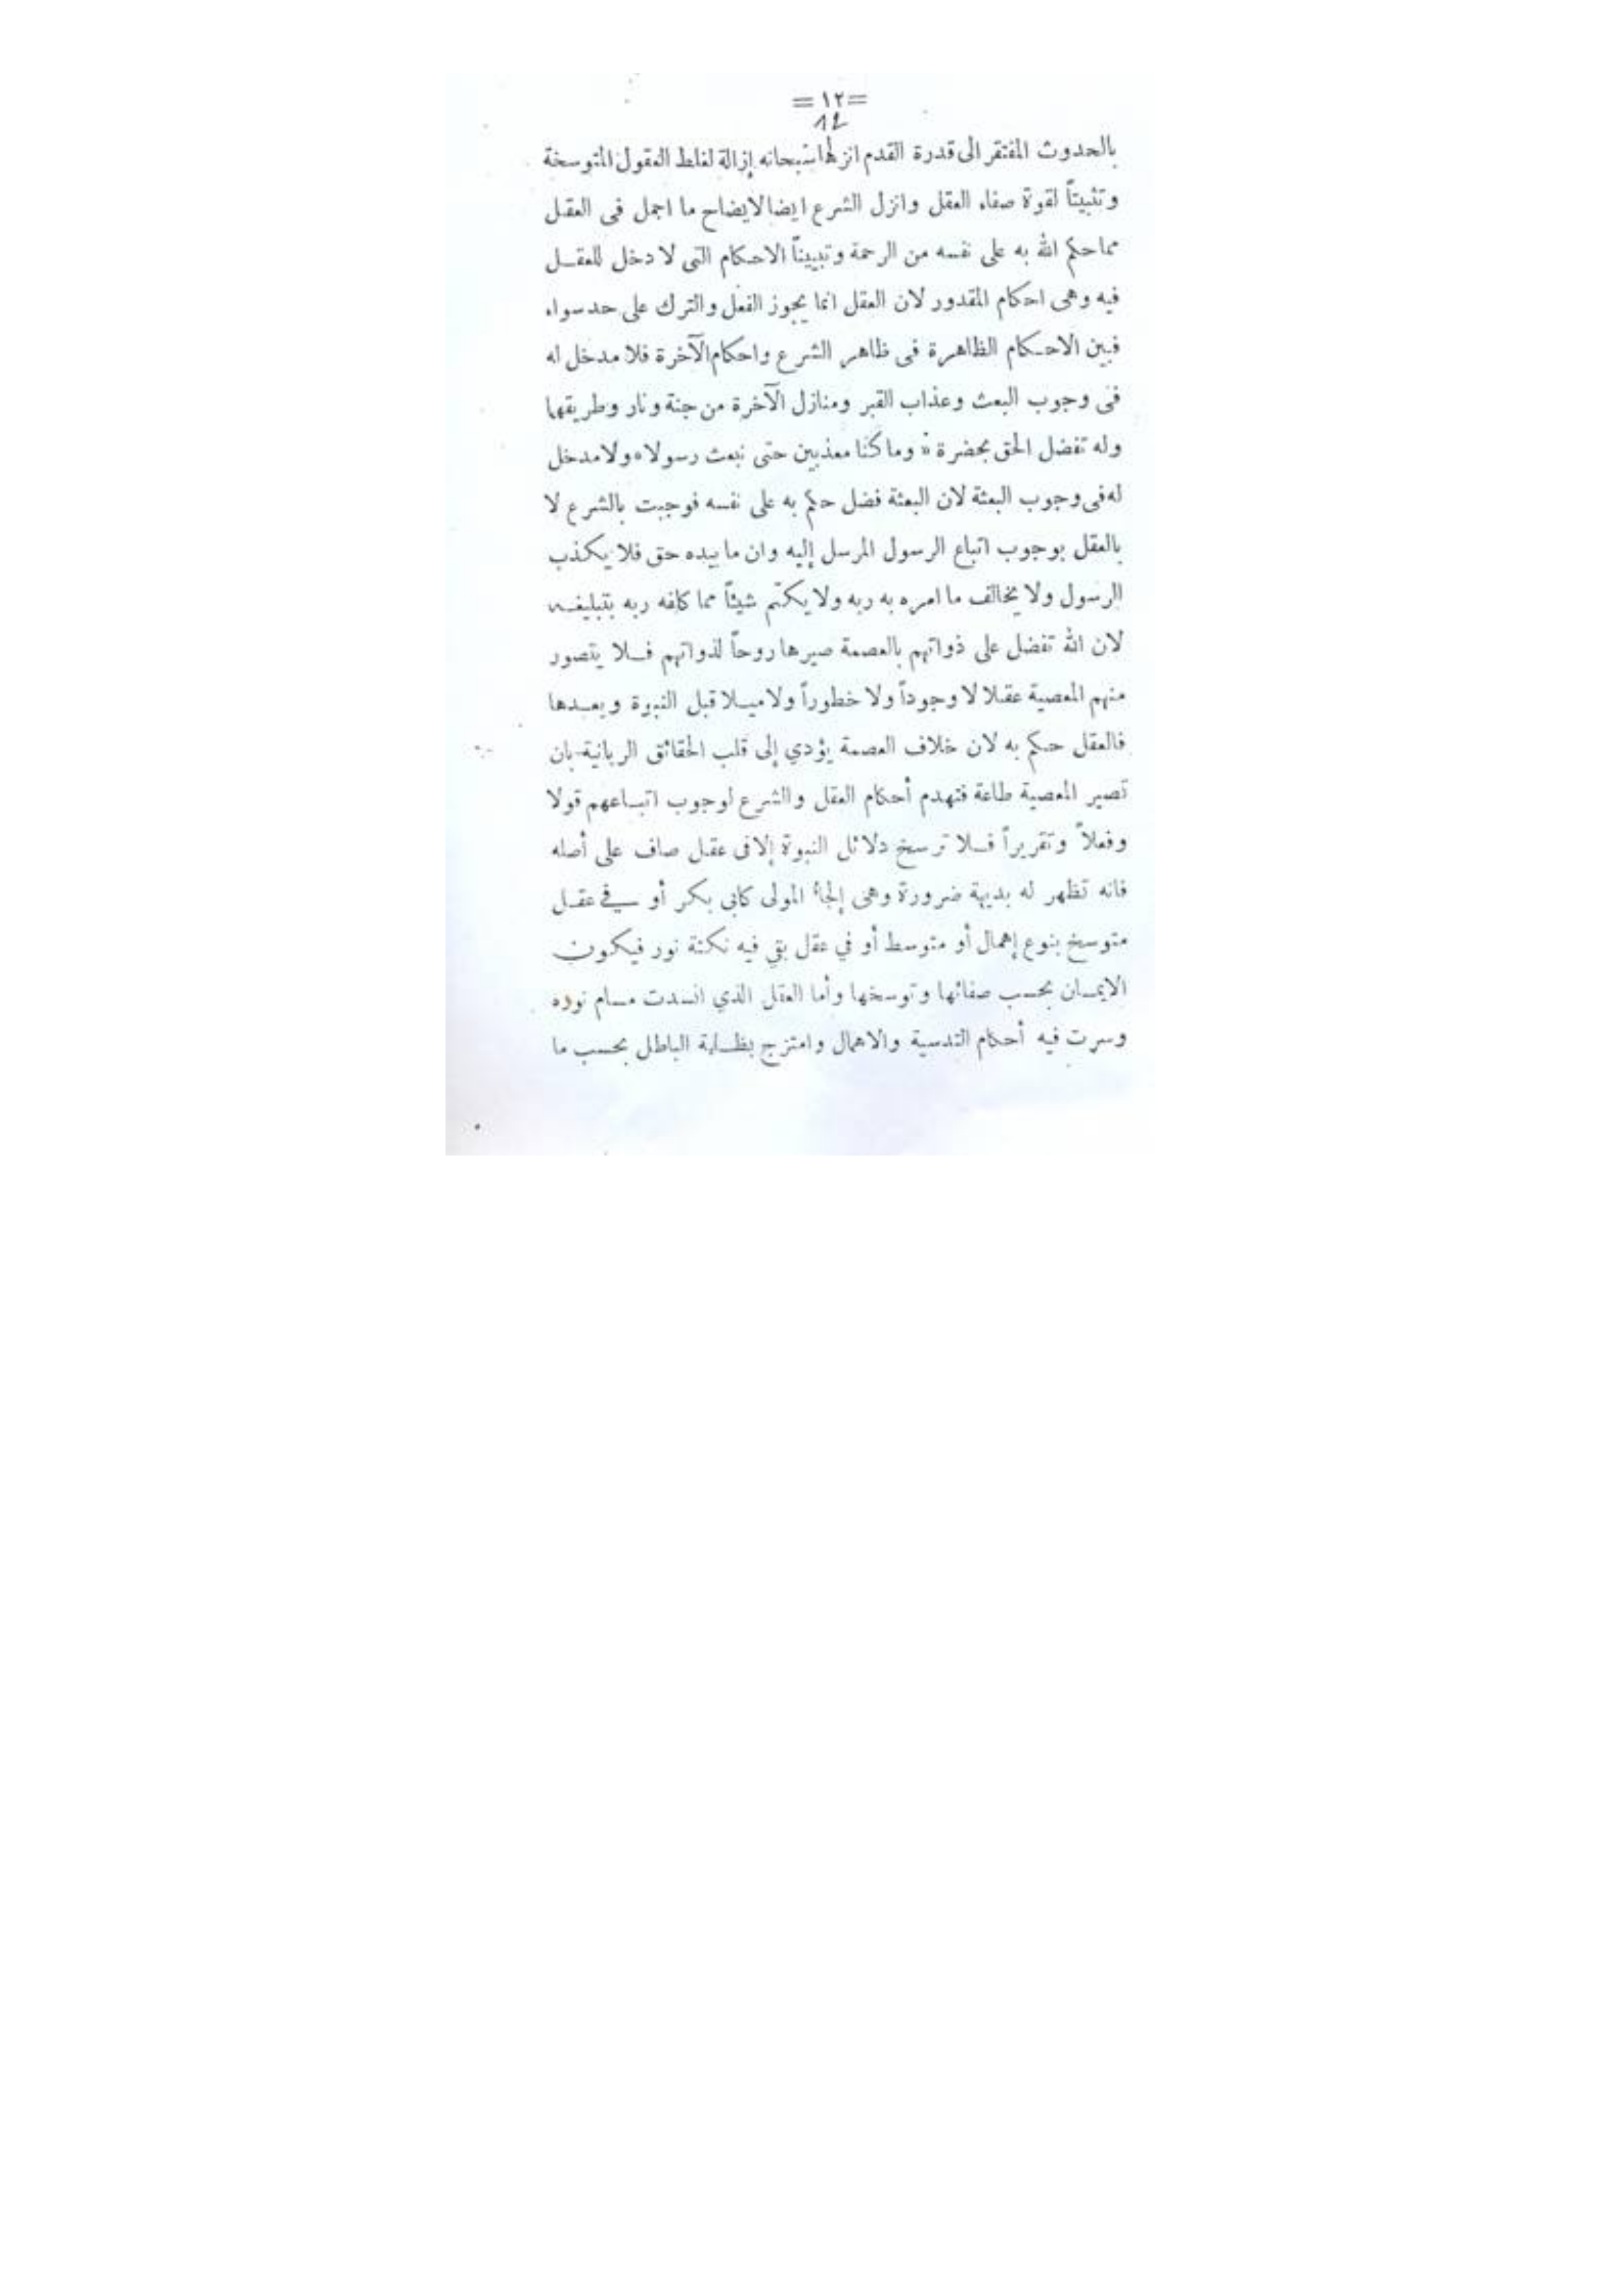 =١٢=
12
بالحدوث المفتقر الى قدرة القدم انزلها سبحانه إزالة لغلط العقول المتوسخة
وتثبيتاً لقوة صفاء العقل وانزل الشرع ايضا لايضاح ما اجمل فى العقل
مما حكم الله به على نفسه من الرحمة وتبييناً الاحكام التى لا دخل للعقل
فيه وهى احكام المقدور لان العقل انما يجوز الفعل والترك على حد سواء
فبين الاحكام الظاهرة فى ظاهر الشرع واحكام الآخرة فلا مدخل له
فى وجوب البعث وعذاب القبر ومنازل الآخرة من جنة ونار وطريقها
وله تفضل الحق بحضرة « وما كنا معذبين حتى نبعث رسولا» ولا مدخل
له فى وجوب البعثة لان البعثة فضل حكم به على نفسه فوجبت بالشرع لا
بالعقل بوجوب اتباع الرسول المرسل إليه وان ما بيده حق فلا يكذب
الرسول ولا يخالف ما امره به ربه ولا يكتم شيئاً مما كلفه ربه بتبليغه
لان الله تفضل على ذواتهم بالعصمة صيرها روحاً لذواتهم فلا يتصور
منهم المعصية عقلا لا وجوداً ولا خطوراً ولا ميلا قبل النبوة وبعدها
فالعقل حكم به لان خلاف العصمة يؤدي إلى قلب الحقائق الربانية بان
تصير المعصية طاعة فتهدم أحكام العقل والشرع لوجوب اتباعهم قولا
وفعلاً وتقريراً فلا ترسخ دلائل النبوة إلا فى عقل صاف على أصله
فانه تظهر له بديهة ضرورة وهى إلجاء المولى كابى بكر أو في عقل
متوسخ بنوع إهمال أو متوسط أو في عقل بقي فيه نكتة نور فيكون
الايمان بحسب صفائها وتوسخها وأما العقل الذي انسدت مسام نوره
وسرت فيه أحكام التدسية والاهمال وامتزج بظلمة الباطل بحسب ما